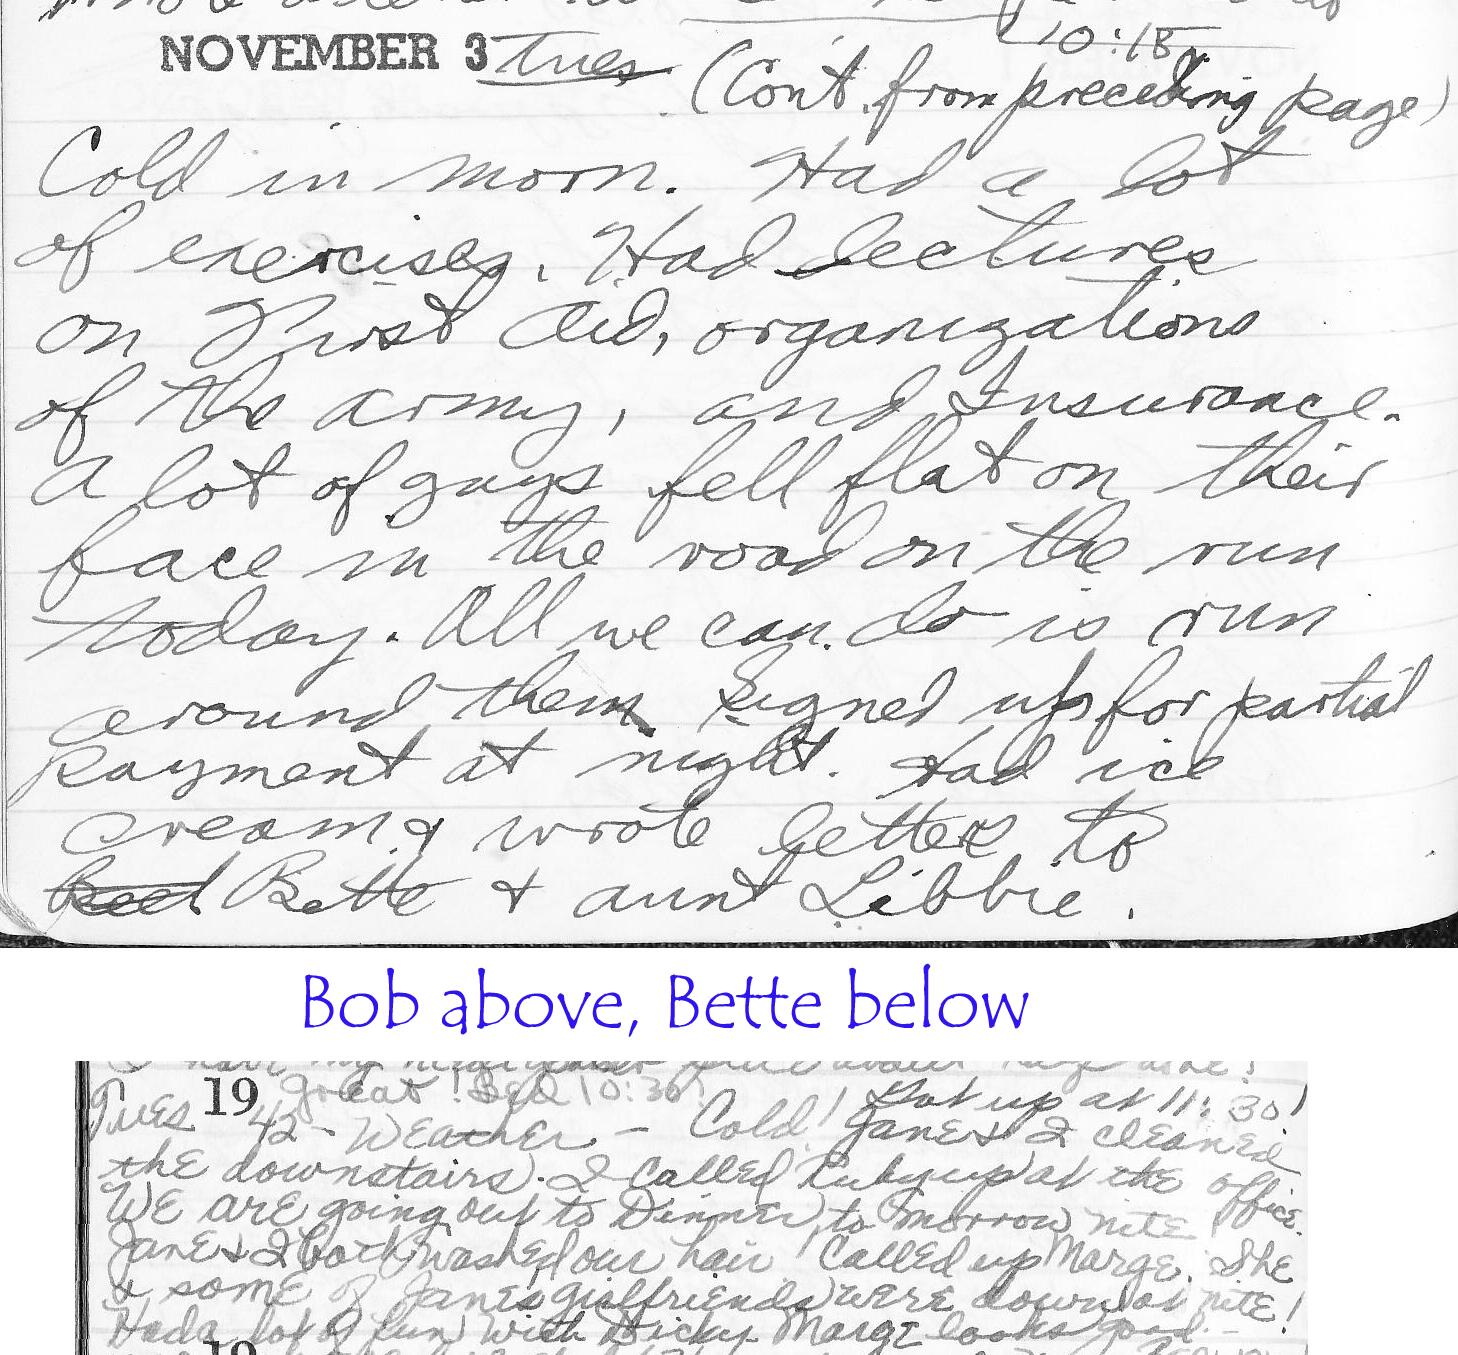 10:18
NOVEMBER 3 Tues
(Cont. from preceding page)
Cold in morn. Had a lot
of exercises. Had lectures
on First Aid, organizations
of the army, and Insurance.
A lot of guys fell flat on their
face in the road on the run
today. All we can do is run
around them. Signed up for partial
payment at night. Had ice
cream & wrote letters to
Bette & aunt Libbie.
Bob above, Bette below
19 Great! Bed 10:30!
Tues 42 - Weather - Cold! Got up at 11:30!
Jane & I cleaned
the downstairs. I called Ruby up at the office.
We are going out to Dinner tomorrow nite!
Jane & I both washed our hair. Called up Marge. She
& some of Jane's girlfriends were down at nite!
Had a lot of fun with Dicky. Marge looks good.
19